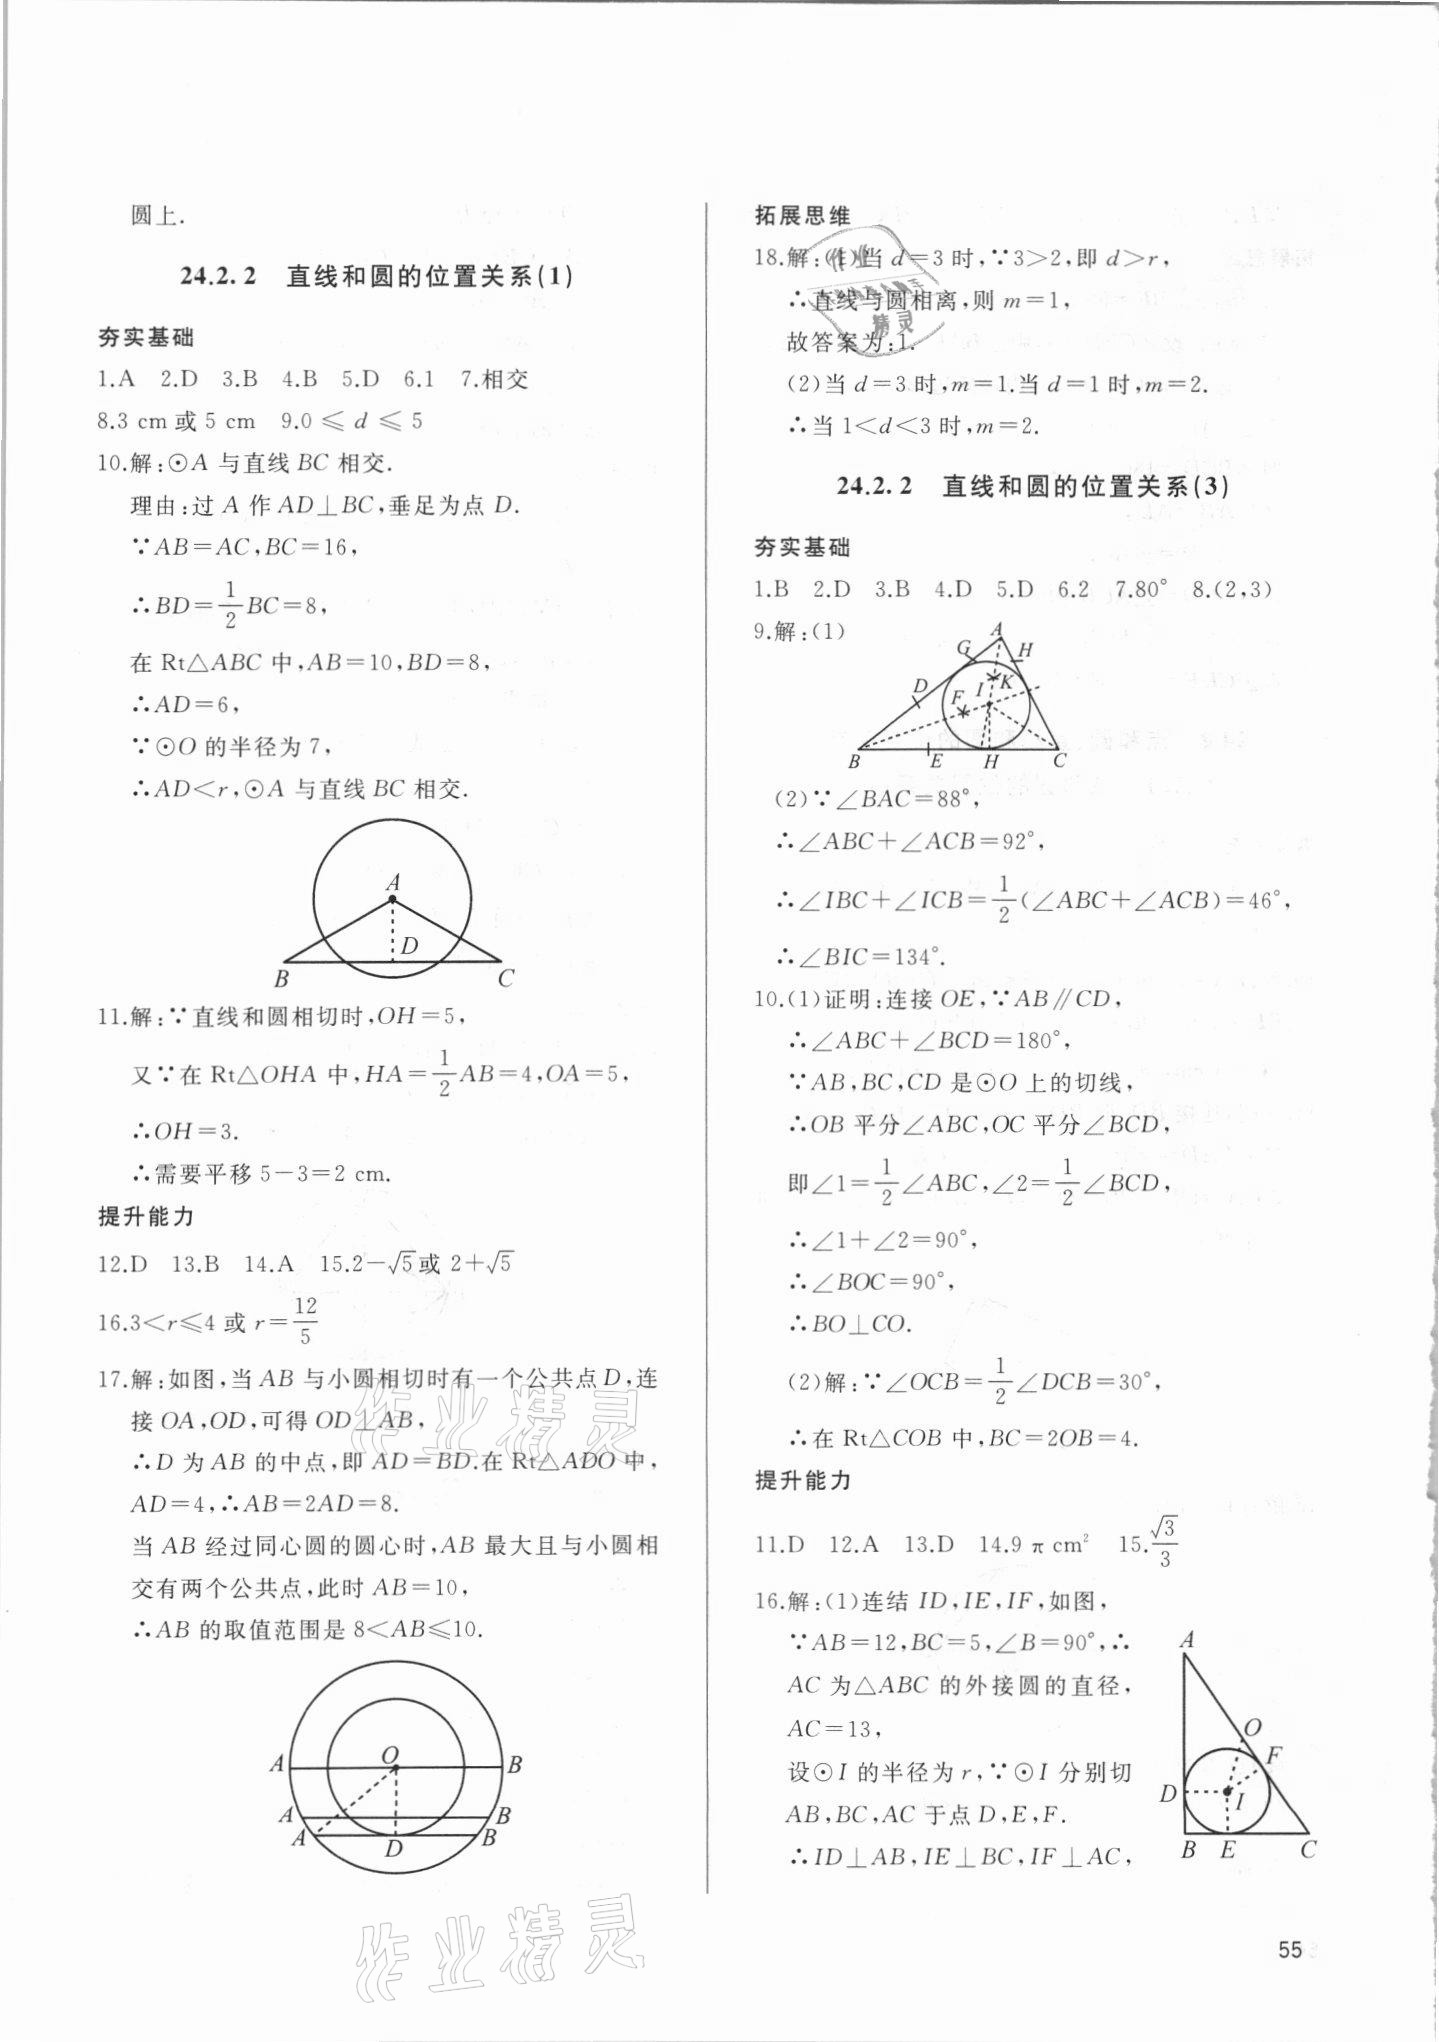 圆上.
24.2.2 直线和圆的位置关系(1)
夯实基础
1.A 2.D 3.B 4.B 5.D 6.1 7.相交
8.3 cm或5 cm 9.0≤d≤5
10.解:⊙A与直线BC相交.
理由:过A作AD⊥BC,垂足为点D.
∵AB=AC,BC=16,
∴BD=1/2BC=8,
在Rt△ABC中,AB=10,BD=8,
∴AD=6,
∵⊙O的半径为7,
∴AD<r,⊙A与直线BC相交.
A
D
B
C
11.解:∵直线和圆相切时,OH=5,
又∵在Rt△OHA中,HA=1/2AB=4,OA=5,
∴OH=3.
∴需要平移5-3=2 cm.
提升能力
12.D 13.B 14.A 15.2-√5或2+√5
16.3<r≤4或r=12/5
17.解:如图,当AB与小圆相切时有一个公共点D,连
接OA,OD,可得OD⊥AB,
∴D为AB的中点,即AD=BD.在Rt△ADO中,
AD=4,∴AB=2AD=8.
当AB经过同心圆的圆心时,AB最大且与小圆相
交有两个公共点,此时AB=10,
∴AB的取值范围是8<AB≤10.
A O B
A B
A D B
拓展思维
18.解:(1)当d=3时,∵3>2,即d>r,
∴直线与圆相离,则m=1,
故答案为:1.
(2)当d=3时,m=1.当d=1时,m=2.
∴当1<d<3时,m=2.
24.2.2 直线和圆的位置关系(3)
夯实基础
1.B 2.D 3.B 4.D 5.D 6.2 7.80° 8.(2,3)
9.解:(1)
A
G H
D F I K
B E H C
(2)∵∠BAC=88°,
∴∠ABC+∠ACB=92°,
∴∠IBC+∠ICB=1/2(∠ABC+∠ACB)=46°,
∴∠BIC=134°.
10.(1)证明:连接OE,∵AB∥CD,
∴∠ABC+∠BCD=180°,
∵AB,BC,CD是⊙O上的切线,
∴OB平分∠ABC,OC平分∠BCD,
即∠1=1/2∠ABC,∠2=1/2∠BCD,
∴∠1+∠2=90°,
∴∠BOC=90°,
∴BO⊥CO.
(2)解:∵∠OCB=1/2∠DCB=30°,
∴在Rt△COB中,BC=2OB=4.
提升能力
11.D 12.A 13.D 14.9 π cm² 15.√3/3
16.解:(1)连结ID,IE,IF,如图,
∵AB=12,BC=5,∠B=90°,∴
AC为△ABC的外接圆的直径,
AC=13,
设⊙I的半径为r,∵⊙I分别切
AB,BC,AC于点D,E,F.
∴ID⊥AB,IE⊥BC,IF⊥AC,
A
O
F
D I
B E C
55
作业精灵
作业精灵
作业
精灵